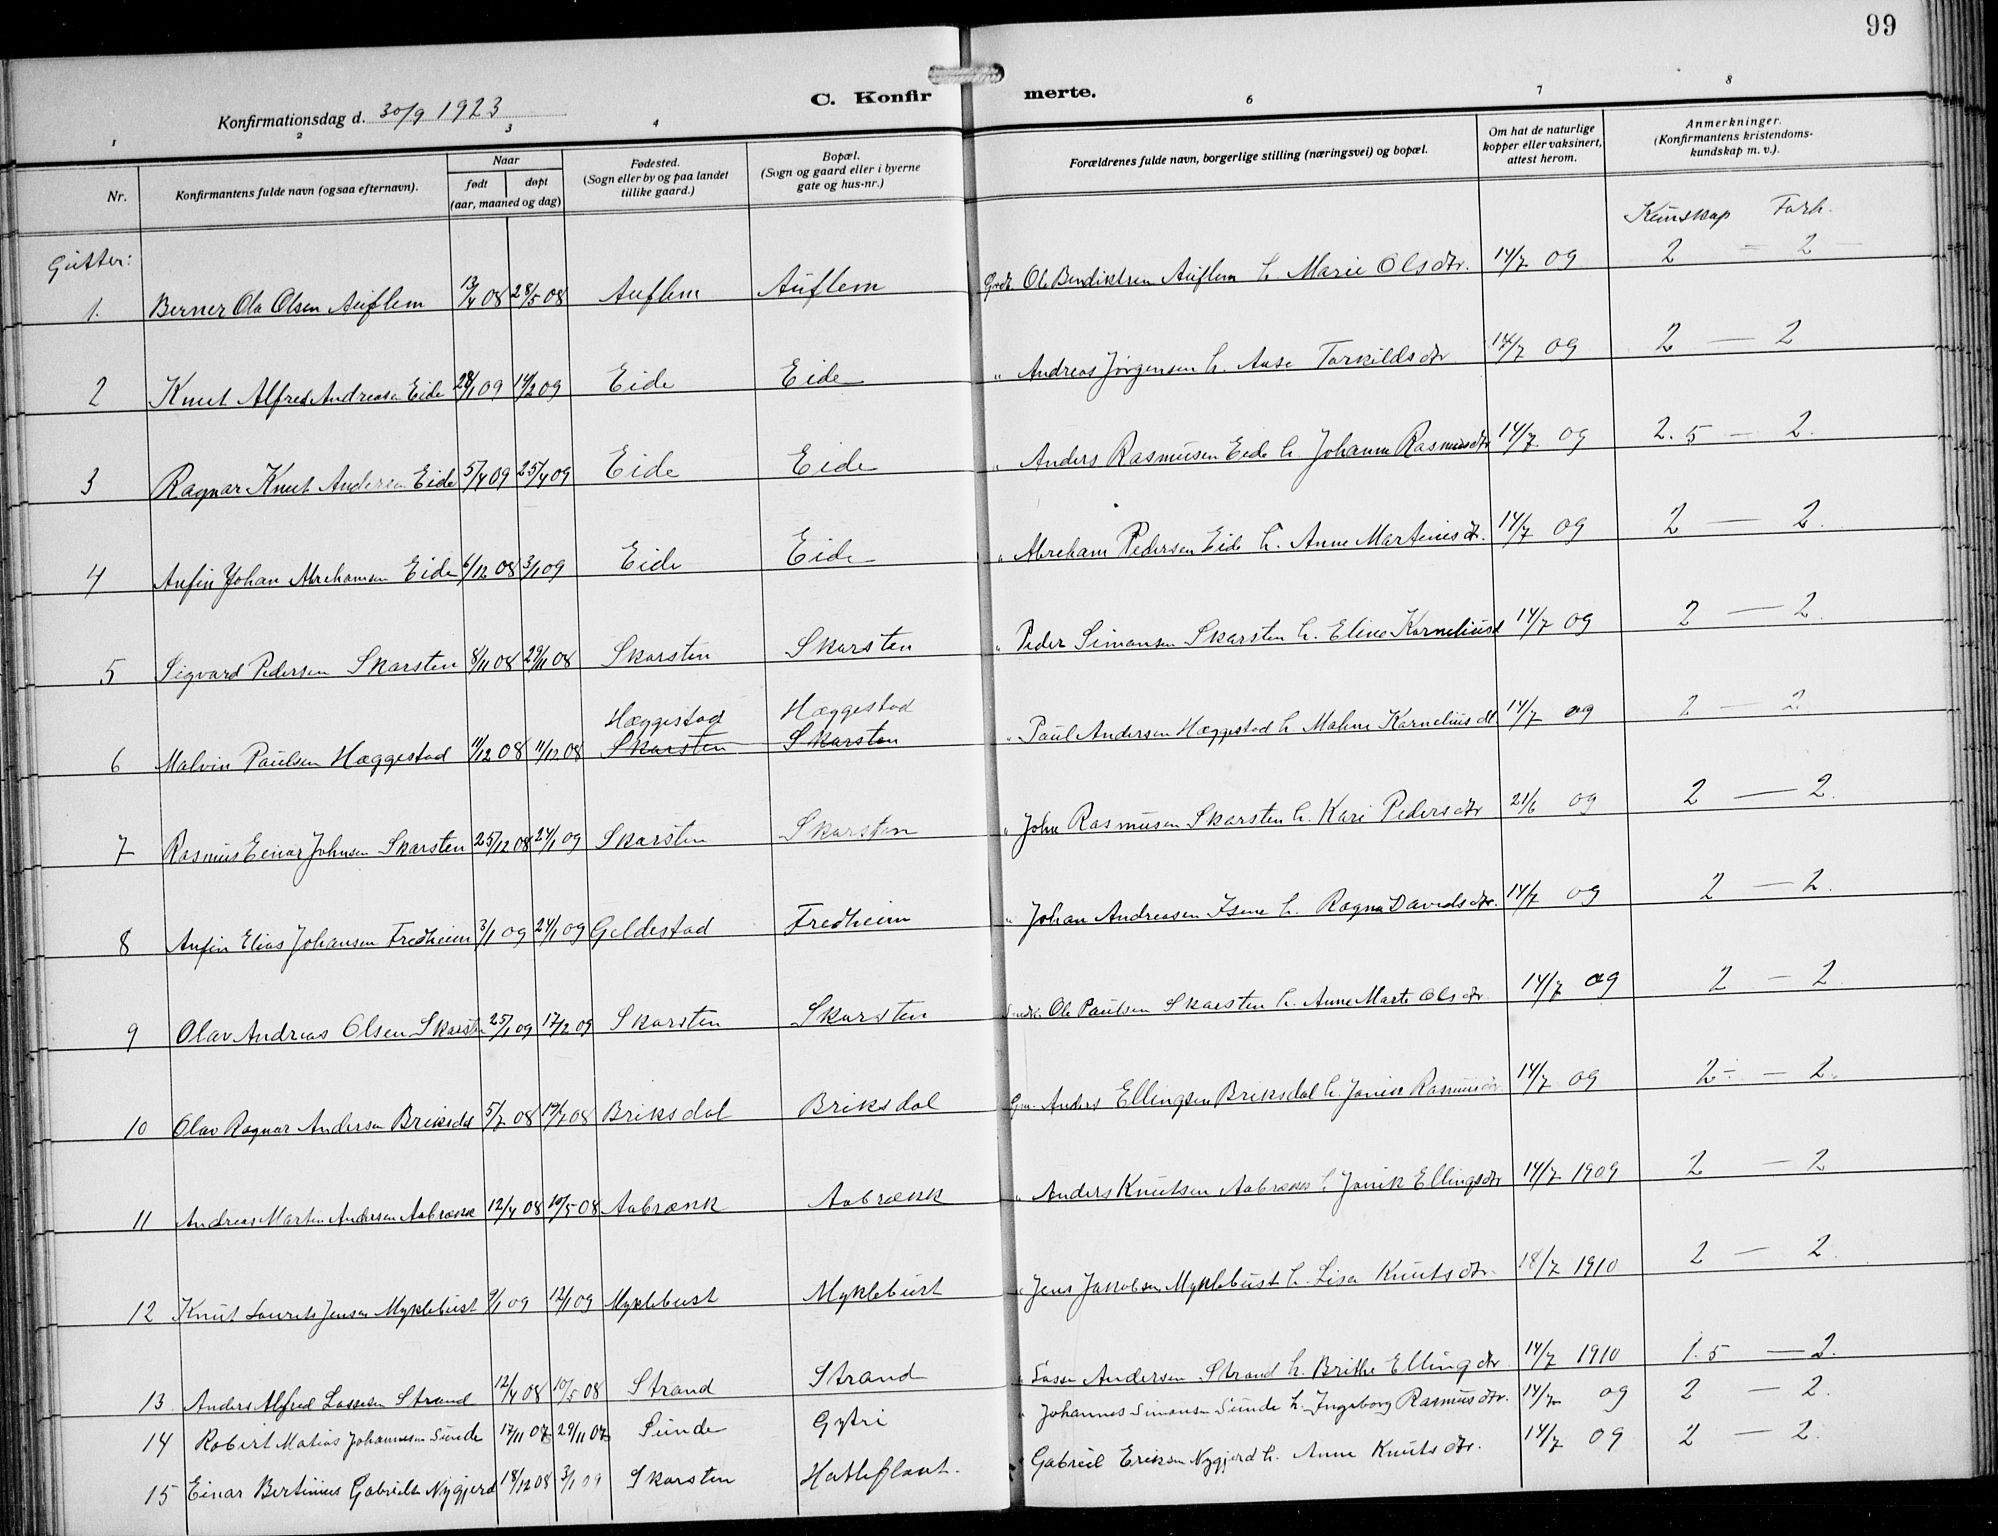 99
Konfirmationsdag d. 30/9 1923
C. Konfir merte.
1 2 3 4 6 7 8
Nr.
Konfirmantens fulde navn (ogsaa efternavn).
Naar
født
døpt
(aar, maaned og dag)
Fødested.
(Sogn eller by og paa landet
tillike gaard.)
Bopæl.
(Sogn og gaard eller i byerne
gate og hus-nr.)
Forældrenes fulde navn, borgerlige stilling (næringsvei) og bopæl.
Om hat de naturlige
kopper eller vaksinert,
attest herom.
Anmerkninger.
(Konfirmantens kristendoms-
kundskap m. v.).
Kunskap Forh.
Gutter:
1. Berner Ola Olsen Auflem 13/4 08 28/5 08 Auflem Auflem Grdb. Ole Bendiktsen Auflem h. Marie Olsdtr. 14/7 09 2 — 2 —
2 Knut Alfred Andreasen Eide 28/1 09 14/2 09 Eide Eide " Andreas Jørgensen h. Aase Torkildsdtr 14/7 09 2 — 2
3 Ragnar Knut Andersen Eide 5/4 09 25/4 09 Eide Eide " Anders Rasmusen Eide h. Johanne Rasmusdtr 14/7 09 2.5 — 2.
4 Anfin Johan Abrehamsen Eide 6/12 08 3/1 09 Eide Eide " Abreham Pedersen Eide h. Anne Martinusdtr. 14/7 09 2 — 2.
5 Sigvard Pedersen Skarsten 8/11 08 29/11 08 Skarsten Skarsten " Peder Simonsen Skarsten h. Eline Korneliusd 14/7 09 2 — 2.
Hæggestad Hæggestad
6 Malvin Paulsen Hæggestad 11/12 08 11/12 08 Skarsten Skarsten " Paul Andersen Hæggestad h. Malene Kornelius dt 14/7 09 2 — 2.
7 Rasmus Einar Johnsen Skarsten 25/12 08 24/1 09 Skarsten Skarsten " John Rasmusen Skarsten h. Kari Pedersdtr 21/6 09 2 — 2.
8 Anfin Elias Johansen Fredheim 3/1 09 24/1 09 Goldestad Fredheim " Johan Andreasen Isene h. Ragna Davidsdtr. 14/7 09 2 — 2.
9 Olav Andreas Olsen Skarstn 25/1 09 17/2 09 Skarsten Skarsten Ole Paulsen Skarsten h. Anne Marte Olsdtr. 14/7 09 2 — 2.
10 Olav Ragnar Andersen Briksdal 5/7 08 19/7 08 Briksdal Briksdal Anders Ellingsen Briksdal h. Janike Rasmusdtr 14/7 09 2- — 2.
11 Andreas Martin Andersen Aabrekk 12/4 08 10/5 08 Aabrekk Aabrekk " Anders Knutsen Aabrekk h. Janik Ellingsdtr 14/7 1909 2 — 2
12 Knut Laurits Jensen Myklebust 9/1 09 12/1 09 Myklebust Myklebust " Jens Jakobsen Myklebust h. Lisa Knutsdtr. 18/7 1910 2 — 2.
13. Anders Alfred Lassesen Strand 12/4 08 10/5 08 Strand Strand " Lasse Andersen Strand h. Brithe Ellingdtr. 14/7 1910 1.5 — 2.
14 Robert Matias Johannesen Sunde 17/11 07 29/11 07 Sunde Gytri " Johannes Simonsen Sunde h. Ingeborg Rasmusdtr. 14/7 09 2 — 2.
15 Einar Bertinius Gabrielsn Nygjerd 18/12 08 3/1 09 Skarsten Hatleflaat. Gabriel Eriksen Nygjerd h. Anne Knutsdtr. 14/7 09 2 — 2.